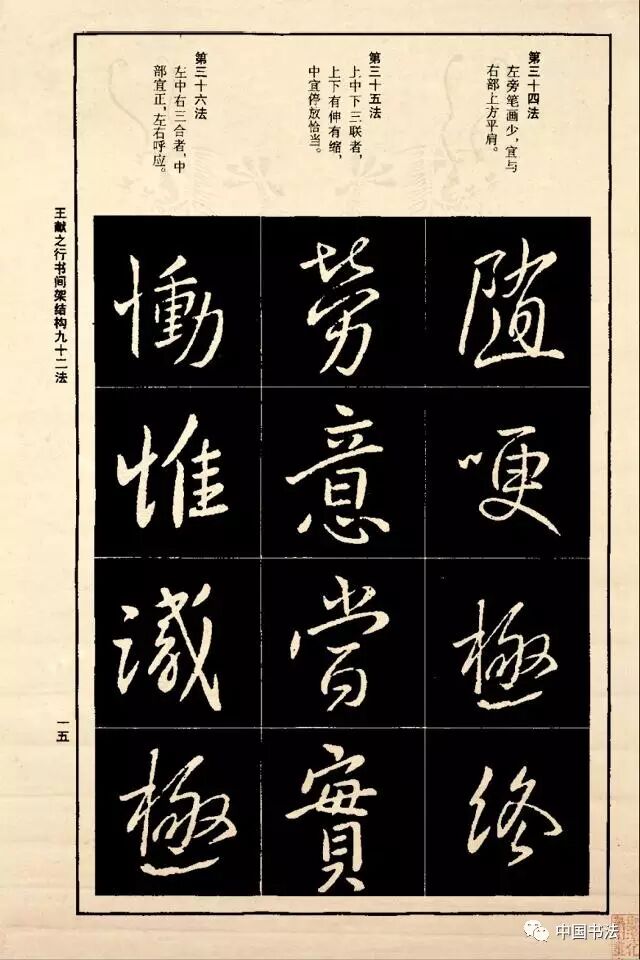 第三十四法
左旁笔画少，宜与
右部上方平肩。
第三十五法
上中下三联者，
上下有伸有缩，
中宜停放恰当。
第三十六法
左中右三合者，中
部宜正，左右呼应。
哽
極
終
勞
意
實
慟
惟
識
極
王献之行书间架结构九十二法
一五
中国书法